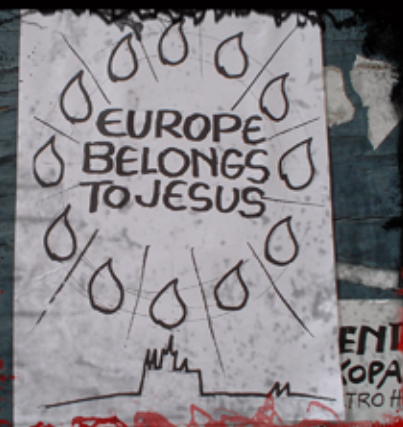 EUROPE
BELONGS
TO JESUS
ENT
KOPA
TRO H